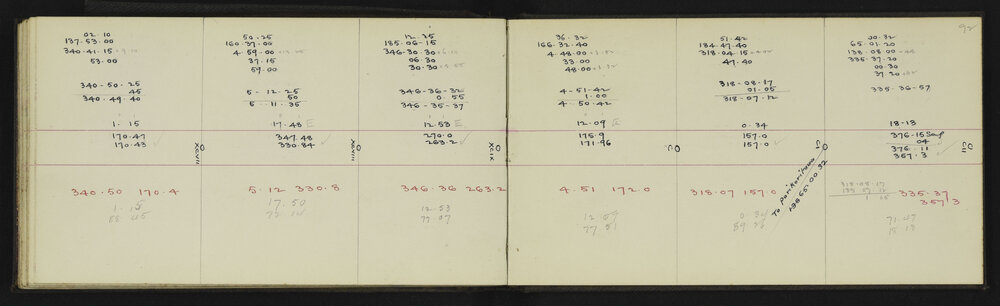 02.10
137.53.00
340.41.15
53.00
340.50.25
45
340.49.40
1.15
170.47
170.43
XCVII
340.50 170.4
1.15
50.25
160.37.00
4.59.00
37.15
59.00
5.12.25
50
5.11.35
17.48 E
347.48
330.84
XCVIII
5.12 330.8
17.50
12.35
185.06.15
346.30.30
06.30
30.30
346.36.32
0.55
346.35.37
12.53 E
270.0
263.2
XCIX
346.36 263.2
12.53
77.07
36.32
166.32.40
4.48.00
33.00
48.00
4.51.42
1.00
4.50.42
12.09 E
175.9
171.96
C
4.51 172.0
77.51
51.42
184.47.40
318.04.15
47.40
318.08.17
01.05
318.07.12
0.34
157.0
157.0
CI
318.07 157.0
0.34
89.26
To Parikarikawa
138.57.00.32
92
00.32
65.01.20
138.08.00
335.37.20
00.30
37.20
335.36.57
18.13
376.15
04
376.11
357.3
CII
318.08.17
1 05
335.37
357.3
71.47
18.13